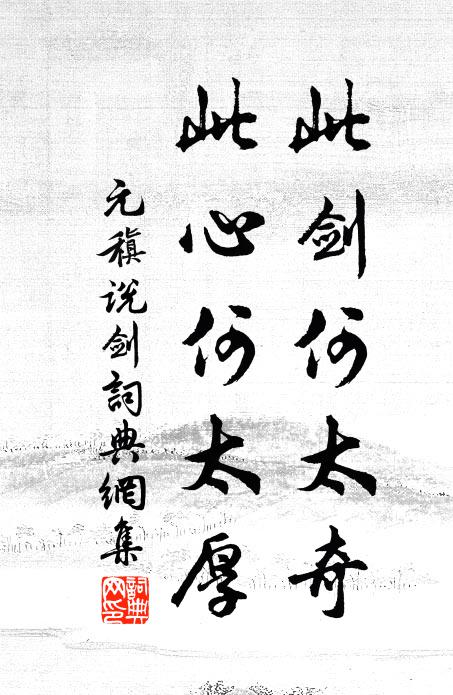 此剑何太奇
此心何太厚
元稹说剑詞典網集
詞典网印